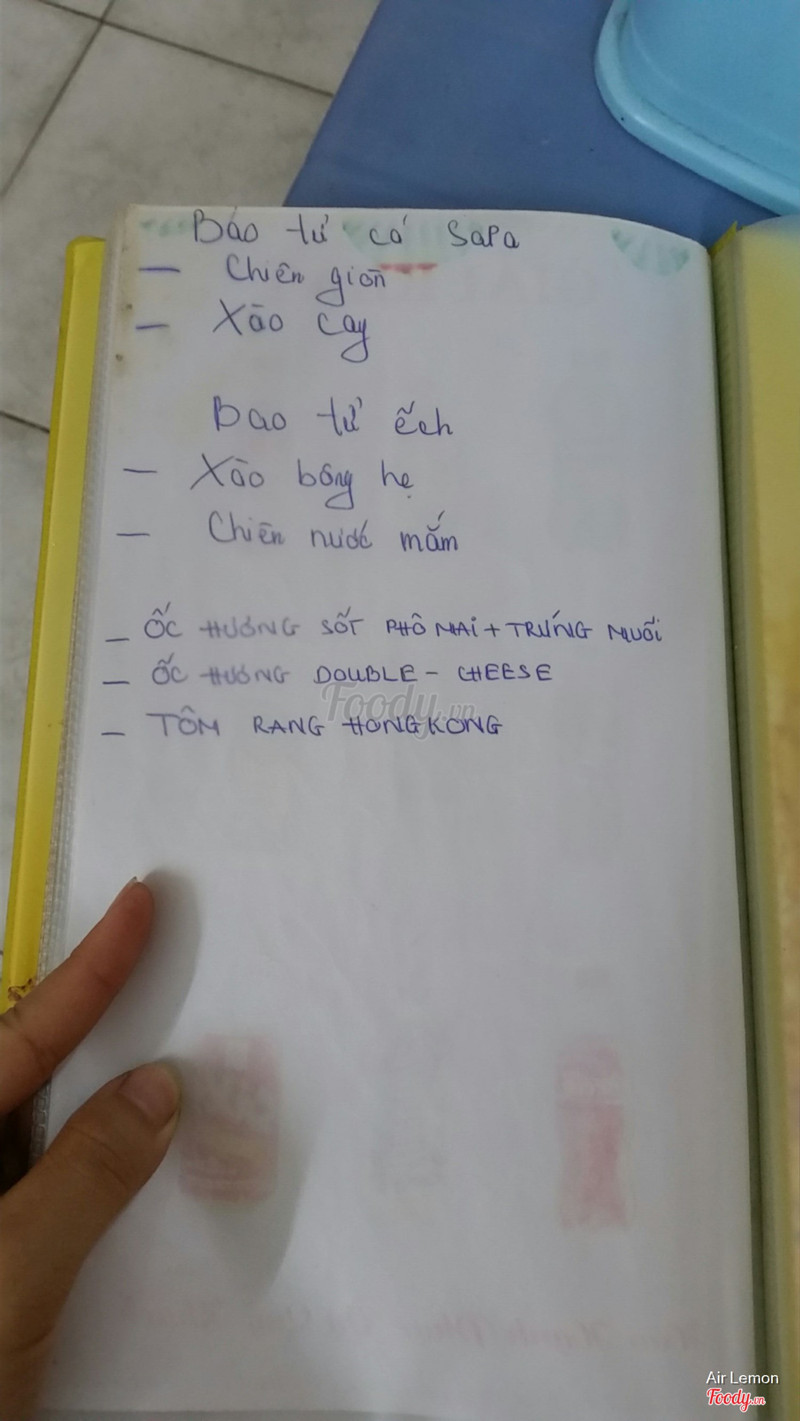 Báo tử cá SaPa
– Chiên giòn
– Xào cay
Bao tử ếch
– Xào bông hẹ
– Chiên nước mắm
– ỐC HƯƠNG SỐT PHÔ MAI + TRỨNG MUỐI
– ỐC HƯƠNG DOUBLE - CHEESE
– TÔM RANG HONGKONG
Foody.vn
Air Lemon
Foody.vn